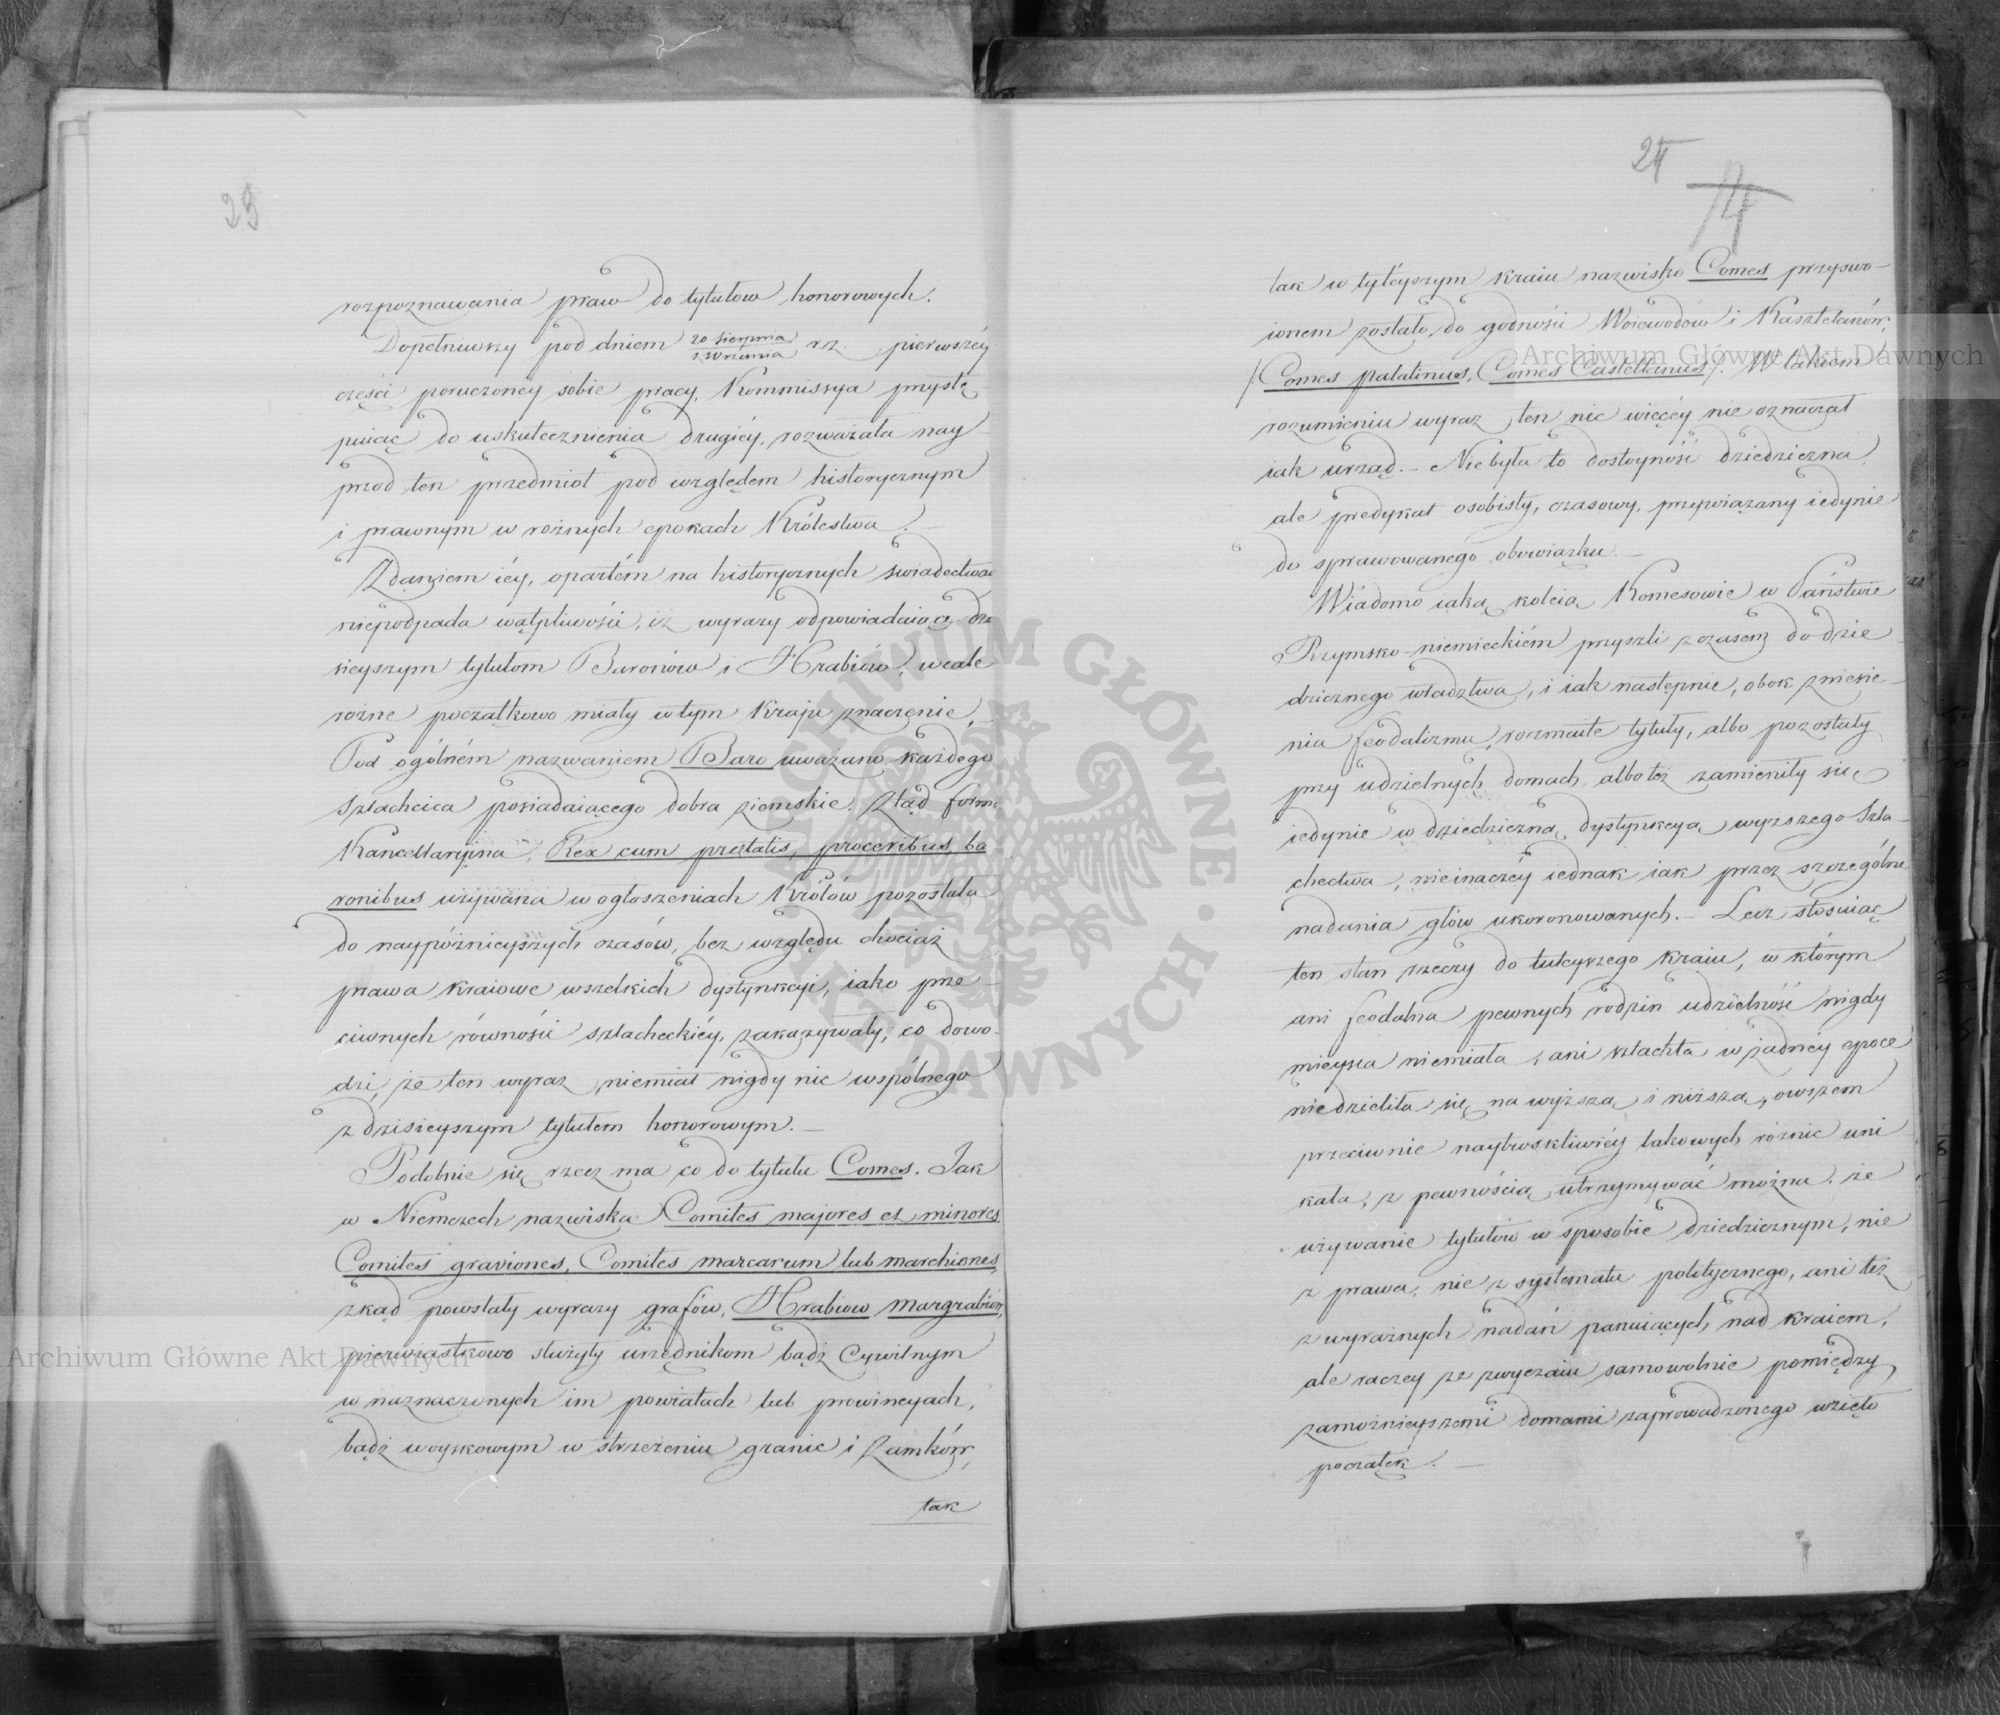 23
rozpoznawania praw do tytułow honorowych.
Dopełniwszy pod dniem 20 Sierpnia / 1 Września r.z. pierwszéy
części poruczoney sobie pracy, Kommissya przystę-
puiąc do uskutecznienia drugiéy, rozważała nay
przod ten przedmiot pod względem historycznym
i prawnym w rożnych epokach Królestwa. –
Zdaniem iéy, opartém na historycznych świadectwach
niepodpada wątpliwości, iż wyrazy odpowiadaiące dzi
sieyszym tytułom Baronów i Hrabiów, wcale
rożne początkowo miały w tym Kraju znaczenie, –
Pod ogólném nazwaniem Baro uważano każdego
Szlachcica posiadaiącego dobra ziemskie. Ztąd forma
Kancellaryina, Rex cum prelatis, proceribus, ba
ronibus używana w ogłoszeniach Królów pozostała
do naypóźnieyszych czasów, bez względu chociaż
prawa kraiowe wszelkich dystynkcyi, iako prze –
ciwnych równości szlacheckiéy, zakazywały, co dowo-
dzi, że ten wyraz niemiał nigdy nic wspólnego
z dzisieyszym tytułem honorowym. –
Podobnie się rzecz ma co do tytułu Comes. Jak
w Niemczech nazwiska Comites majores et minores,
Comites graviones, Comites marcarum lub marchiones,
zkąd powstały wyrazy grafów, Hrabiow margrabiów,
pierwiastkowo służyły urzędnikom bądź Cywilnym
w naznaczonych im powiatach lub prowincyach,
bądź woyskowym w strzeżeniu granic i Zamków,
tak
24
tak w tyteyszym kraiu nazwisko Comes przyswo –
ionem zostało do godności Woiewodów i Kasztelanów,
/Comes palatinus, Comes Castellanus/. W takiem
rozumieniu wyraz ten nic więcéy nie oznaczał
iak urząd. – Niebyła to dostoyność dziedziczna
ale predykat osobisty, czasowy, przywiązany iedynie
do sprawowanego obowiązku. –
Wiadomo iaką koleią Komesowie w Państwie
Rzymsko-niemieckiém przyszli z czasem do dzie
dzicznego władztwa, i iak następnie, obok zniesie –
nia feodalizmu, rozmaite tytuły, albo pozostały
przy udzielnych domach, albo też zamieniły się
iedynie w dziedziczną dystynkcyą wyższego Szla –
chectwa, nieinaczéy iednak iak przez szczególne
nadania głów ukoronowanych. – Lecz stosuiąc
ten stan rzeczy do tuteyszego kraiu, w którym
ani feodalna pewnych rodzin udzielność nigdy
mieysca niemiała, ani szlachta w żadnéy epoce
niedzieliła się na wyższą i niższą, owszem
przeciwnie naytroskliwiéy takowych różnic uni
kała, z pewnością utrzymywać można, że
używanie tytułów w sposobie dziedzicznym, nie
z prawa, nie z systematu politycznego, ani też
z wyraźnych nadań panuiących nad kraiem,
ale raczey ze zwyczaiu samowolnie pomiędzy
zamożnieyszemi domami zaprowadzonego wzięło
początek. –
Archiwum Główne Akt Dawnych
Archiwum Główne Akt Dawnych
ARCHIWUM GŁÓWNE • AKT DAWNYCH •